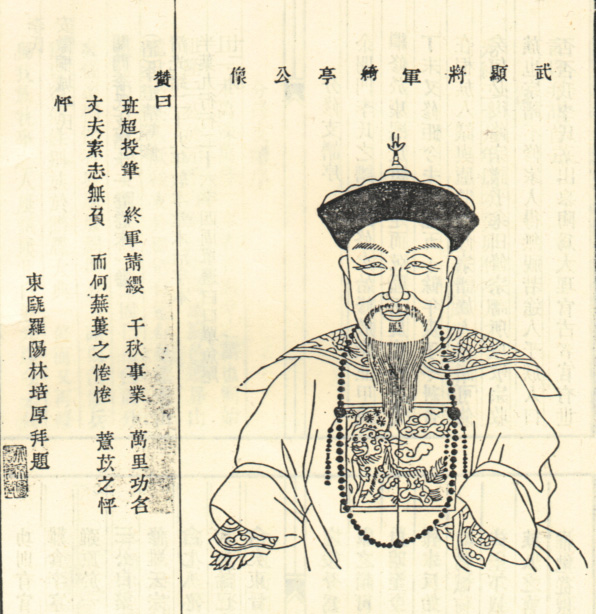 武顯將軍綺亭公像
贊曰
班超投筆　終軍請纓　千秋事業　萬里功名
丈夫素志無負　而何蕪蔞之惓惓　薏苡之怦
怦
東甌羅陽林培厚拜題